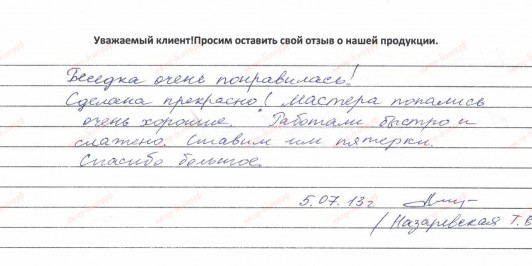 Уважаемый клиент!Просим оставить свой отзыв о нашей продукции.
Беседка очень понравилась!
Сделана прекрасно! Мастера попались
очень хорошие. Работали быстро и
слажено. Ставим им пятерки.
Спасибо большое.
5.07.13г
/Назаревская Т.В